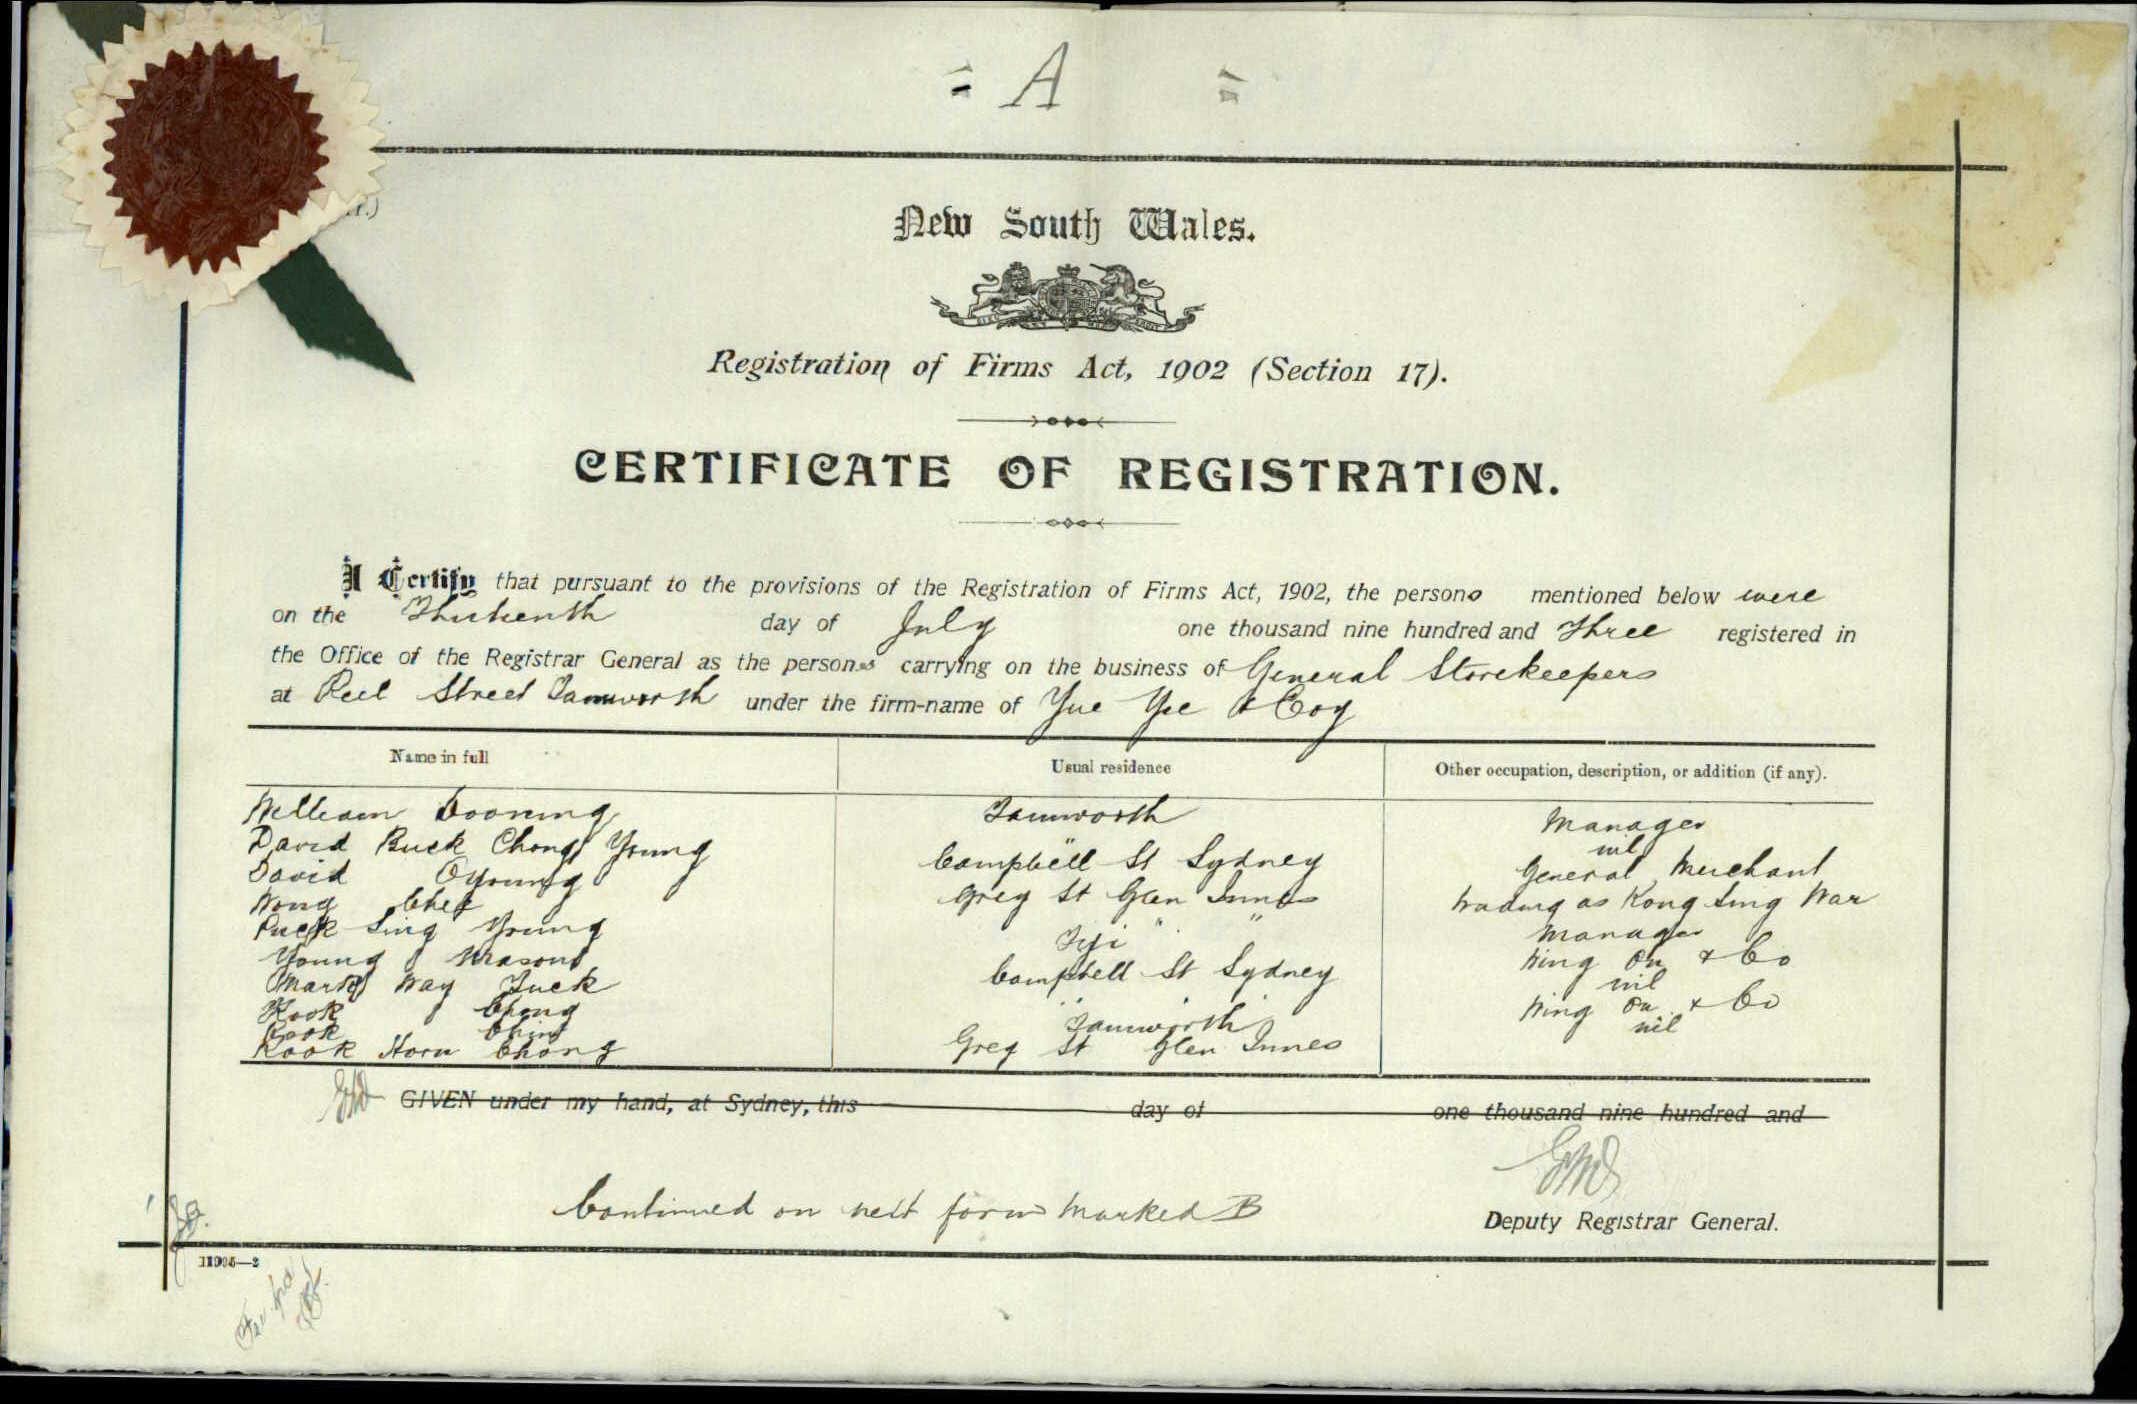 = A =
New South Wales.
Registration of Firms Act, 1902 (Section 17).
CERTIFICATE OF REGISTRATION.
I Certify that pursuant to the provisions of the Registration of Firms Act, 1902, the persons mentioned below were
on the Thirteenth day of July one thousand nine hundred and Three registered in
the Office of the Registrar General as the persons carrying on the business of General Storekeepers
at Peel Street Tamworth under the firm-name of Yue Yee & Coy
Name in full Usual residence Other occupation, description, or addition (if any).
William Gooning Tamworth Manager
David Buck Chong Young " nil
David Oyoung Campbell St Sydney General Merchant
Wong Chee Grey St Glen Innes trading as Kong Sing War
Puck Sing Young " "
Young Mason Fiji Manager
Mark Way Tuck Campbell St Sydney Wing On & Co
Kook Chong " " " nil
Kook Ching Tamworth Wing On & Co
Kook Horn Chong Grey St Glen Innes nil
GIVEN under my hand, at Sydney, this day of one thousand nine hundred and
Continued on next form marked B
Deputy Registrar General.
11995—2